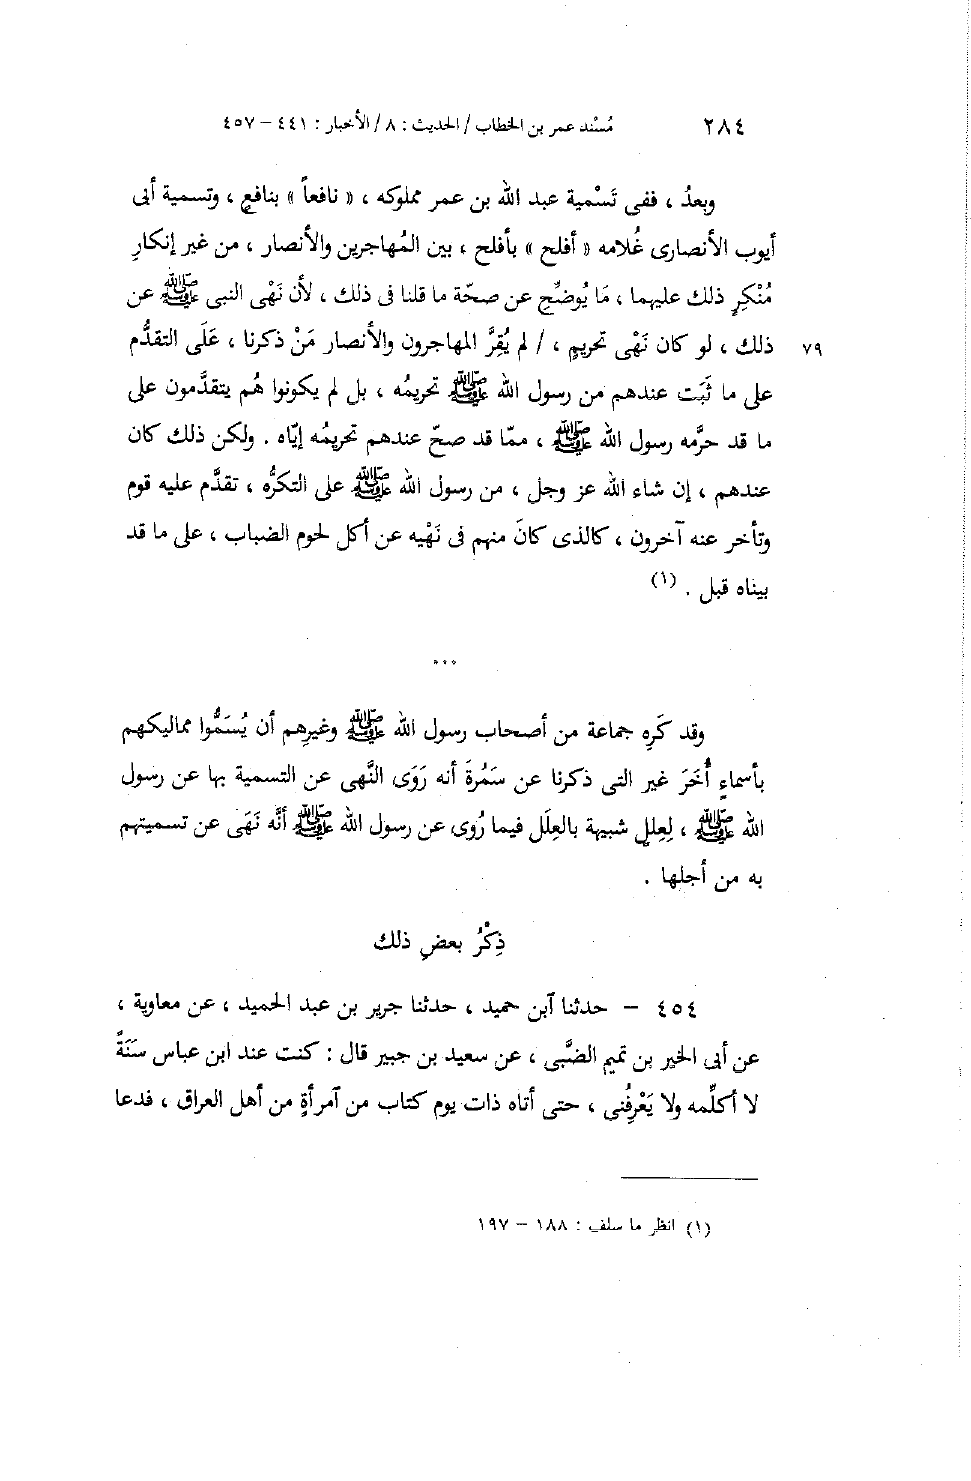 ٢٨٤ مُسْند عمر بن الخطاب / الحديث : ٨ / الأخبار : ٤٤١ – ٤٥٧
وبعدُ ، ففى تَسْمية عبد الله بن عمر مملوكه ، « نافعاً » بنافعٍ ، وتسمية أبى
أيوب الأنصارى غُلامه « أفلح » بأفلح ، بين المُهاجرين والأنصار ، من غير إنكارِ
مُنْكِرٍ ذلك عليهما ، مَا يُوضِّح عن صحّة ما قلنا فى ذلك ، لأن نَهْى النبى ﷺ عن
٧٩ ذلك ، لو كان نَهْى تحريمٍ ، / لم يُقِرَّ المهاجرون والأنصار مَنْ ذكرنا ، عَلَى التقدُّم
على ما ثَبَت عندهم من رسول الله ﷺ تحريمُه ، بل لم يكونوا هُم يتقدَّمون على
ما قد حرَّمه رسول الله ﷺ ، ممّا قد صحّ عندهم تحريمُه إيّاه . ولكن ذلك كان
عندهم ، إن شاء الله عز وجل ، من رسول الله ﷺ على التكرُّه ، تقدَّم عليه قوم
وتأخر عنه آخرون ، كالذى كانَ منهم فى نَهْيه عن أكل لحوم الضباب ، على ما قد
بيناه قبل . (١)
***
وقد كَرِه جماعة من أصحاب رسول الله ﷺ وغيرِهم أن يُسَمُّوا مماليكهم
بأسماءٍ أُخَرَ غير التى ذكرنا عن سَمُرةَ أنه رَوَى النَّهى عن التسمية بها عن رسول
الله ﷺ ، لِعِللٍ شبيهة بالعِلَل فيما رُوِى عن رسول الله ﷺ أنَّه نَهَى عن تسميتهم
به من أجلها .
ذِكْرُ بعضِ ذلك
٤٥٤ – حدثنا آبن حميد ، حدثنا جرير بن عبد الحميد ، عن معاوية ،
عن أبى الخير بن تميم الضَّبى ، عن سعيد بن جبير قال : كنت عند ابن عباس سَنَةً
لا أكلِّمه ولا يَعْرِفُنى ، حتى أتاه ذات يوم كتاب من آمرأةٍ من أهل العراق ، فدعا
(١) انظر ما سلف : ١٨٨ – ١٩٧